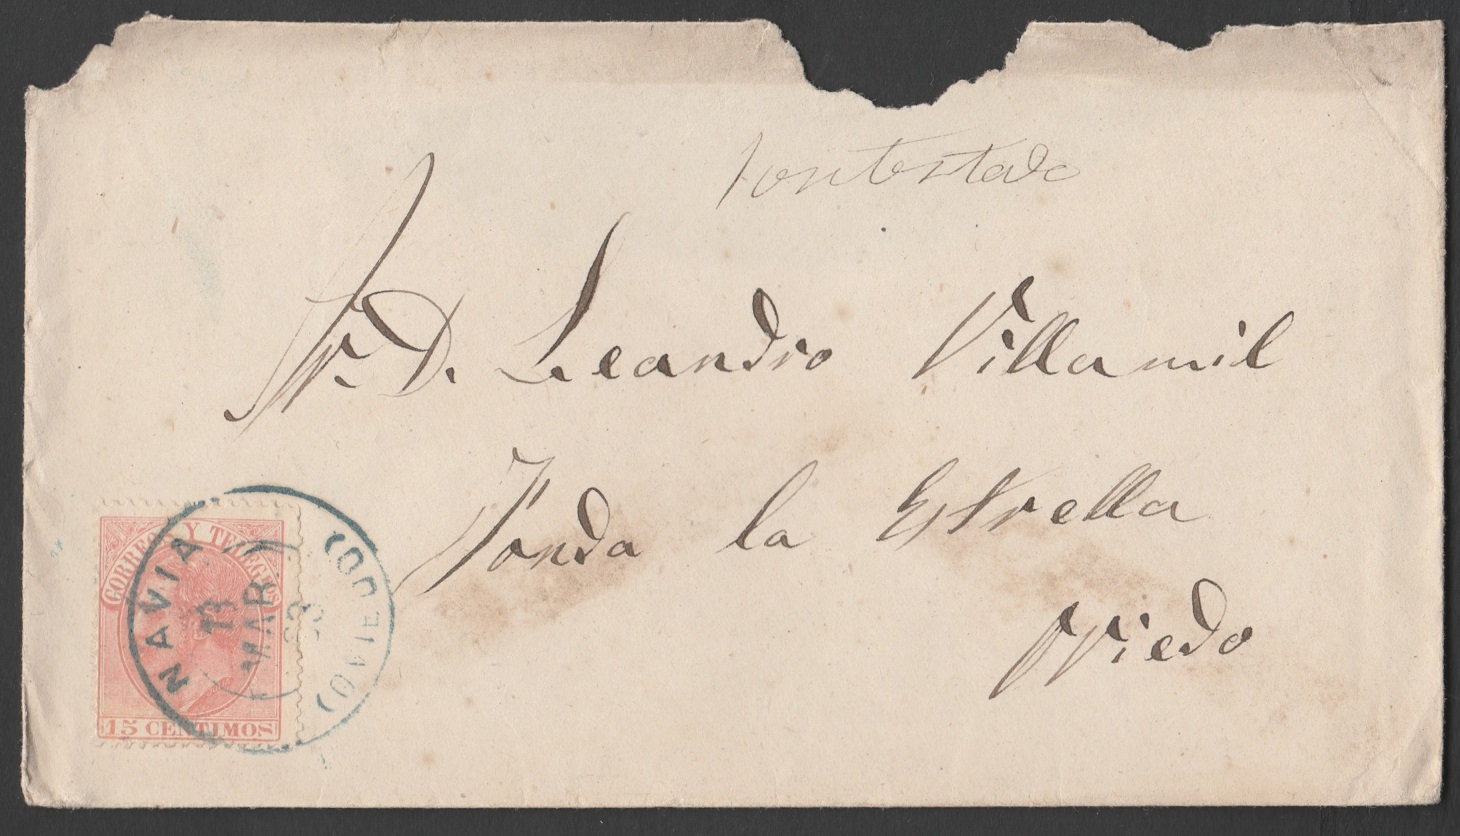 Contestado
Sr. D. Leandro Villamil
Fonda la Estrella
Oviedo
CORREOS Y TELEGFOS
15 CENTIMOS
NAVIA
MAR
(OVIEDO)